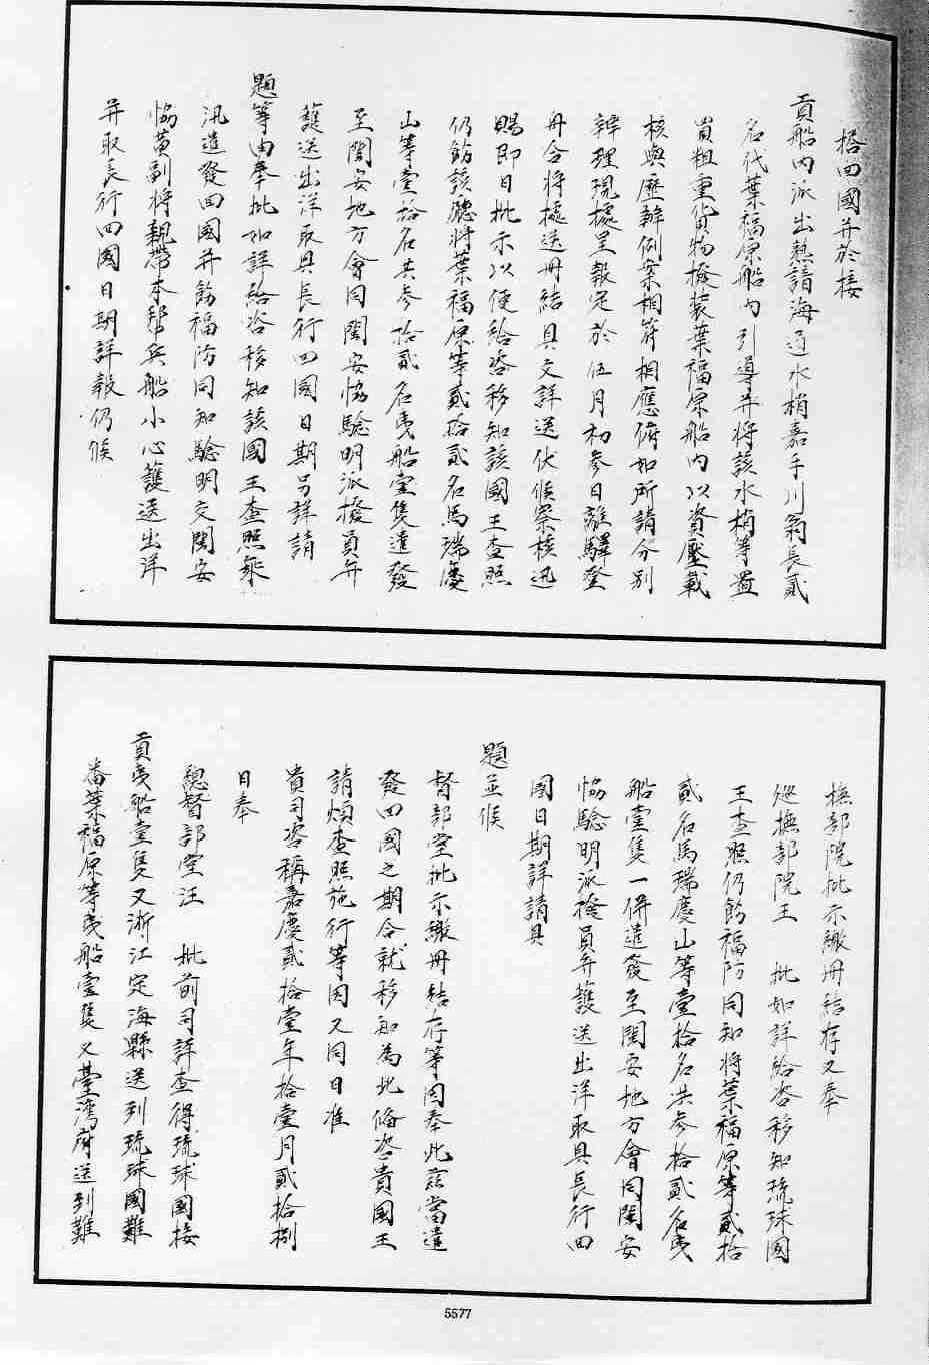 搭回國并於接
貢船內派出熟諳海道水梢嘉手川筑長貳
名代葉福原船內引導并將該水梢等置
買粗重貨物撥裝葉福原船內以資壓載
核與歷辦例案相符相應俯如所請分別
辦理現據呈報定於伍月初參日離驛登
舟合將據送冊結具文詳送伏候察核迅
賜即日批示以便給咨移知該國王查照
仍飭該廳將葉福原等貳拾貳名馬瑞慶
山等壹拾名共參拾貳名夷船壹隻遣發
至閩安地方會同閩安協驗明派撥員弁
護送出洋取具長行回國日期另詳請
題等由奉批如詳給咨移知該國王查照乘
汛遣發回國并飭福防同知驗明交閩安
協黃副將親帶本幫兵船小心護送出洋
并取長行回國日期詳報仍候
撫部院批示繳冊結存又奉
巡撫部院王 批如詳給咨移知琉球國
王查照仍飭福防同知將葉福原等貳拾
貳名馬瑞慶山等壹拾名共參拾貳名夷
船壹隻一併遣發至閩安地方會同閩安
協驗明派撥員弁護送出洋取具長行回
國日期詳請具
題並候
督部堂批示繳冊結存等因奉此茲當遣
發回國之期合就移知為此備咨貴國王
請煩查照施行等因又同日准
貴司咨稱嘉慶貳拾壹年拾壹月貳拾捌
日奉
總督部堂汪 批前司詳查得琉球國接
貢夷船壹隻又浙江定海縣送到琉球國難
番葉福原等夷船壹隻又臺灣府送到難
5577